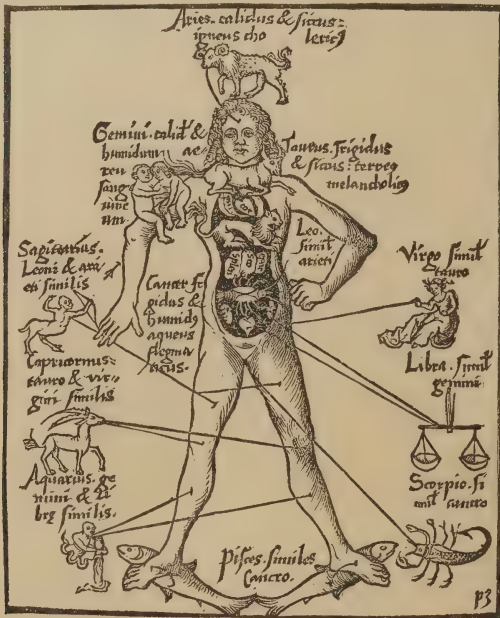 Aries. calidus & siccus:
igneus cho lericꝰ
Gemini. calid' &
humidum. ae
reu
sang
uine
um.
Taurus. frigidus
& siccus: terreꝰ
melancholicꝰ
Leo.
simil'
arieti
Sagittarius.
Leoni & ari
eti similis
Cancer fri
gidus &
humidꝰ
aqueus
flegma
ticus.
Virgo simil'
tauro
Libra. simil'
gemini
Capricornus:
tauro & vir-
gini similis
Aquarius. ge
mini & li
bre similis.
Scorpio. si
mil' cancro
Pisces. similes
Cancro.
p3